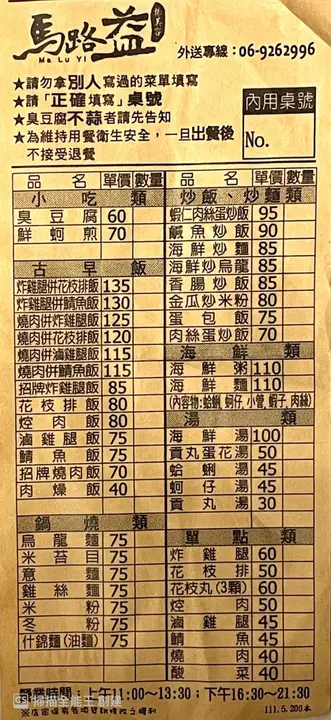 馬路益
Ma Lu Yi
外送專線：06-9262996
★請勿拿別人寫過的菜單填寫
★請「正確填寫」桌號
★臭豆腐不蒜者請先告知
★為維持用餐衛生安全，一旦出餐後
不接受退餐
內用桌號
No.
品名 單價 數量
小吃類
臭豆腐 60
鮮蚵煎 70
古早飯
炸雞腿併花枝排飯 135
炸雞腿併鯖魚飯 130
燒肉併炸雞腿飯 125
燒肉併花枝排飯 120
燒肉併滷雞腿飯 115
燒肉併鯖魚飯 115
招牌炸雞腿飯 85
花枝排飯 80
焢肉飯 80
滷雞腿飯 75
鯖魚飯 75
招牌燒肉飯 70
肉燥飯 40
鍋燒類
烏龍麵 75
米苔目 75
意麵 75
雞絲麵 75
米粉 75
冬粉 75
什錦麵(油麵) 75
品名 單價 數量
炒飯、炒麵類
蝦仁肉絲蛋炒飯 95
鹹魚炒飯 90
海鮮炒麵 85
海鮮炒烏龍 85
香腸炒飯 85
金瓜炒米粉 80
蛋包飯 75
肉絲蛋炒飯 70
海鮮類
海鮮粥 110
海鮮麵 110
(內容物:蛤蜊,蚵仔,小管,蝦子,肉絲)
湯類
海鮮湯 100
貢丸蛋花湯 50
蛤蜊湯 45
蚵仔湯 45
貢丸湯 30
單點
炸雞腿 60
花枝排 50
花枝丸(3顆) 60
焢肉 50
滷雞腿 45
鯖魚 45
燒肉 40
酸菜 40
營業時間：上午11:00～13:30；下午16:30～21:30
111.5.200本
CS 掃描全能王 創建